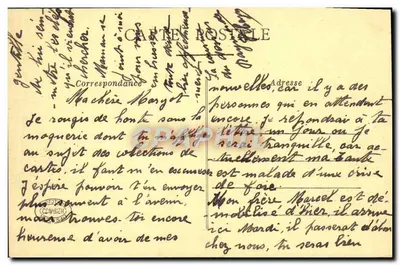 CARTE POSTALE
Correspondance
Adresse
Ma chère Margot
Je rougis de honte sous la
moquerie dont tu m'as
au sujet des collections de
cartes, il faut m'en excuser
J'espère pouvoir t'en envoyer
plus souvent à l'avenir,
mais trouves toi encore
heureuse d'avoir de mes
nouvelles, car il y a des
personnes qui en attendent
encore, je répondrai à ta
lettre un jour ou je
serai tranquille, car ac-
tuellement ma tante
est malade d'une crise
de foie
Mon frère Marcel est dé-
mobilisé d'hier, il arrive
ici Mardi, il passerat d'abord
chez nous, tu seras bien
gentille
de lui
qui
chercher
Maman se
joint à moi
pour vous
embrasser